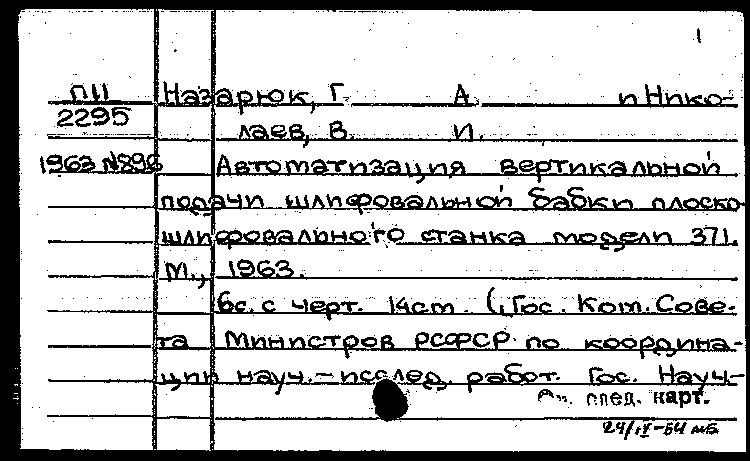 1
П11 Назарюк, Г. А. и Нико-
2295 лаев, В. И.
1963 №896 Автоматизация вертикальной
подачи шлифовальной бабки плоско-
шлифовального станка модели 371.
М., 1963.
6с. с черт. 14см. (Гос. Ком. Сове-
та Министров РСФСР по координа-
ции науч.-исслед. работ. Гос. Науч.-
См. след. карт.
24/IV-64 мб